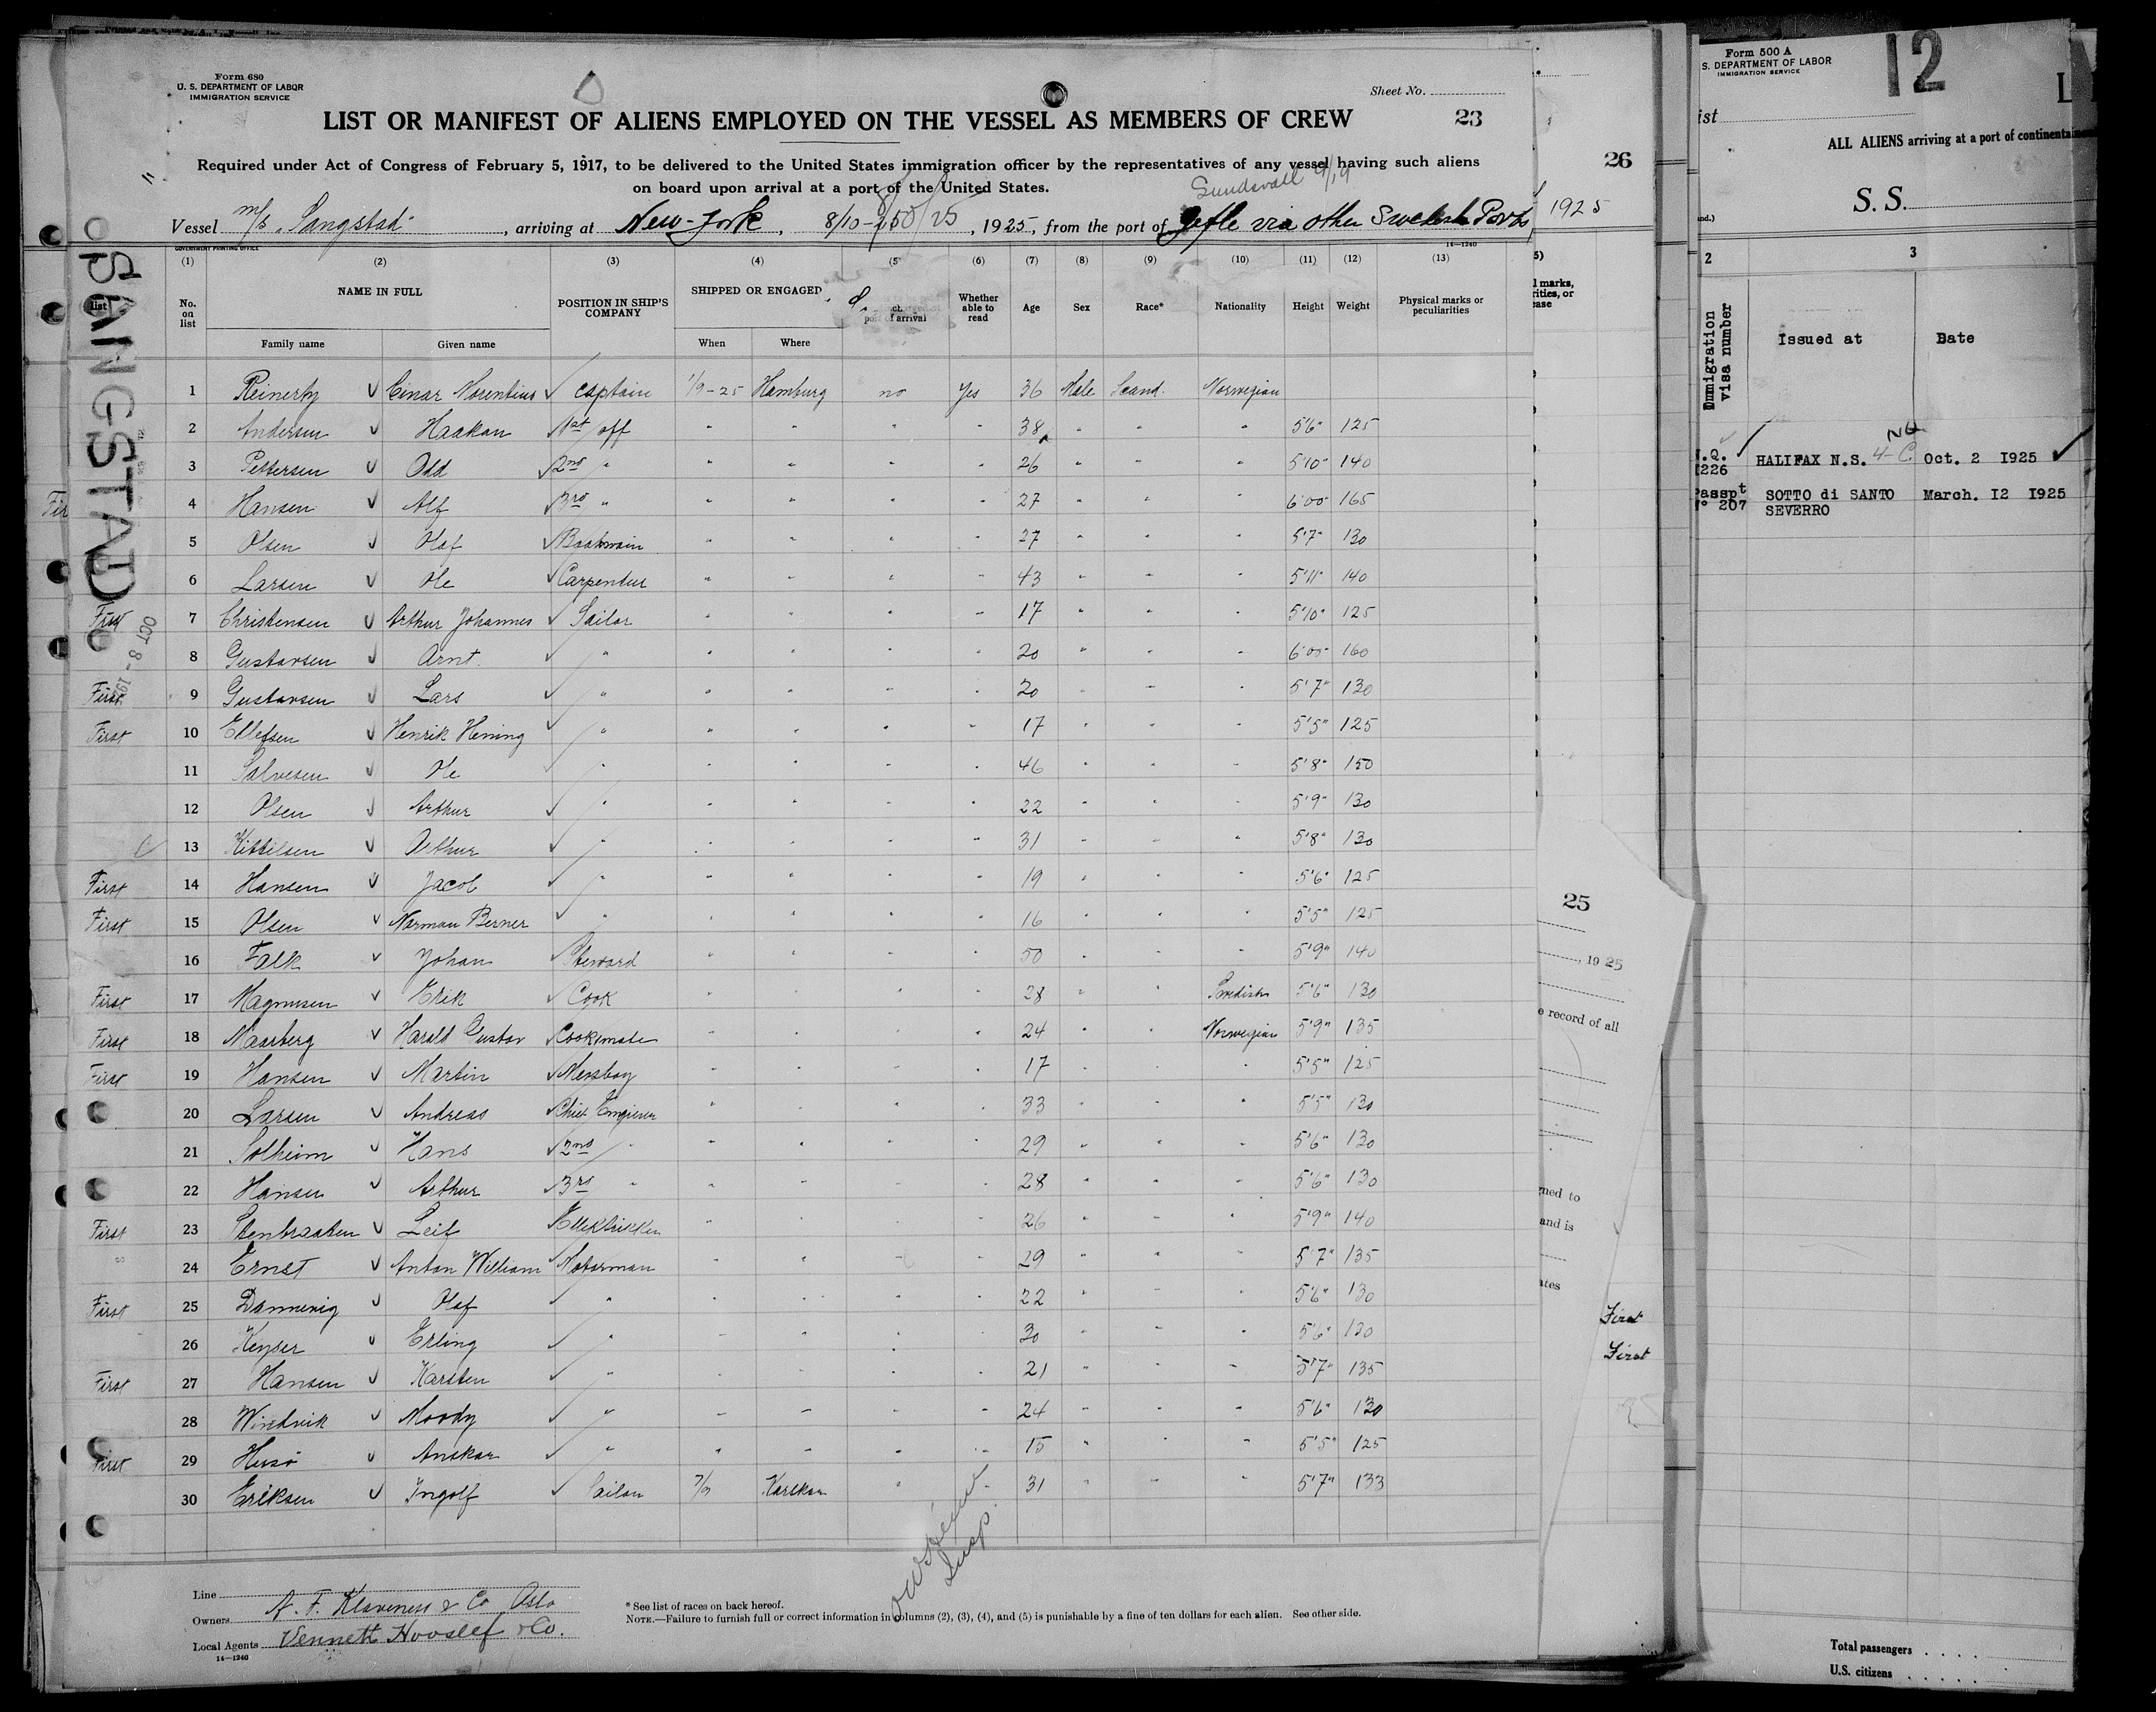 Form 680
U. S. DEPARTMENT OF LABOR
IMMIGRATION SERVICE
Sheet No.
LIST OR MANIFEST OF ALIENS EMPLOYED ON THE VESSEL AS MEMBERS OF CREW
23
Required under Act of Congress of February 5, 1917, to be delivered to the United States immigration officer by the representatives of any vessel having such aliens
on board upon arrival at a port of the United States.
Sundsvall 9/19
Vessel M/S "Sangstad" , arriving at New-York , 8/10- , 1925, from the port of Gefle via other Swedish Ports
GOVERNMENT PRINTING OFFICE
14—1240
(1) (2) (3) (4) (5) (6) (7) (8) (9) (10) (11) (12) (13)
No. on list NAME IN FULL POSITION IN SHIP'S COMPANY SHIPPED OR ENGAGED port of arrival Whether able to read Age Sex Race* Nationality Height Weight Physical marks or peculiarities
Family name Given name When Where
1 Reinerty Einar Norentius Captain 1/9-25 Hamburg no Yes 36 Male Scand. Norwegian
2 Andersen Haakon 1st off " " " " 38 " " " 5'6" 125
3 Pettersen Odd 2nd " " " " " 26 " " " 5'10" 140
4 Hansen Alf 3rd " " " " " 27 " " " 6'00" 165
5 Olsen Olaf Boatswain " " " " 27 " " " 5'7" 130
6 Larsen Ole Carpenter " " " " 43 " " " 5'11" 140
First 7 Christensen Arthur Johannes Sailor " " " " 17 " " " 5'10" 125
8 Gustavsen Arnt. " " " " " 20 " " " 6'00" 160
First 9 Gustavsen Lars " " " " " 20 " " " 5'7" 130
First 10 Ellefsen Henrik Hening " " " " " 17 " " " 5'5" 125
11 Salvesen Ole " " " " " 46 " " " 5'8" 150
12 Olsen Arthur " " " " " 22 " " " 5'9" 130
13 Kittilsen Arthur " " " " " 31 " " " 5'8" 130
First 14 Hansen Jacob " " " " " 19 " " " 5'6" 125
First 15 Olsen Norman Berner " " " " " 16 " " " 5'5" 125
16 Falk Johan Steward " " " " 50 " " " 5'9" 140
First 17 Magnusen Erik Cook " " " " 28 " " Swedish 5'6" 130
First 18 Maarberg Harald Gustav Cooksmate " " " " 24 " " Norwegian 5'9" 135
First 19 Hansen Martin Messboy " " " " 17 " " " 5'5" 125
20 Larsen Andreas Chief Engineer " " " " 33 " " " 5'5" 130
21 Solheim Hans 2nd " " " " " 29 " " " 5'6" 130
22 Hansen Arthur 3rd " " " " " 28 " " " 5'6" 130
First 23 Stenbraaten Leif Ellektrikker " " " " 26 " " " 5'9" 140
24 Ernst Anton William Motorman " " " " 29 " " " 5'7" 135
First 25 Dannevig Olaf " " " " " 22 " " " 5'6" 130
26 Keyser Erling " " " " " 30 " " " 5'6" 130
First 27 Hansen Karsten " " " " " 21 " " " 5'7" 135
28 Windvik Moody " " " " " 24 " " " 5'6" 130
First 29 Husö Anskar " " " " " 15 " " " 5'5" 125
30 Eriksen Ingolf Sailor 7/9 " " 31 " " " 5'7" 133
Insp.
Line
Owners A. F. Klaveness & Co Oslo
Local Agents Bennett Hvoslef & Co.
14—1240
* See list of races on back hereof.
NOTE.—Failure to furnish full or correct information in columns (2), (3), (4), and (5) is punishable by a fine of ten dollars for each alien. See other side.
SANGSTAD
OCT 8 - 19
26
1925
5)
l marks,
rities, or
ease
25
, 1925
e record of all
gned to
and is
ates
First
First
Form 500 A
S. DEPARTMENT OF LABOR
IMMIGRATION SERVICE
12
ist
ALL ALIENS arriving at a port of continenta
S. S.
2 3
Immigration visa number
Issued at Date
N.Q. 1226 HALIFAX N.S. 4-C. Oct. 2 1925
Passpt N° 207 SOTTO di SANTO SEVERRO March. 12 1925
Total passengers . . . .
U.S. citizens . . . . .